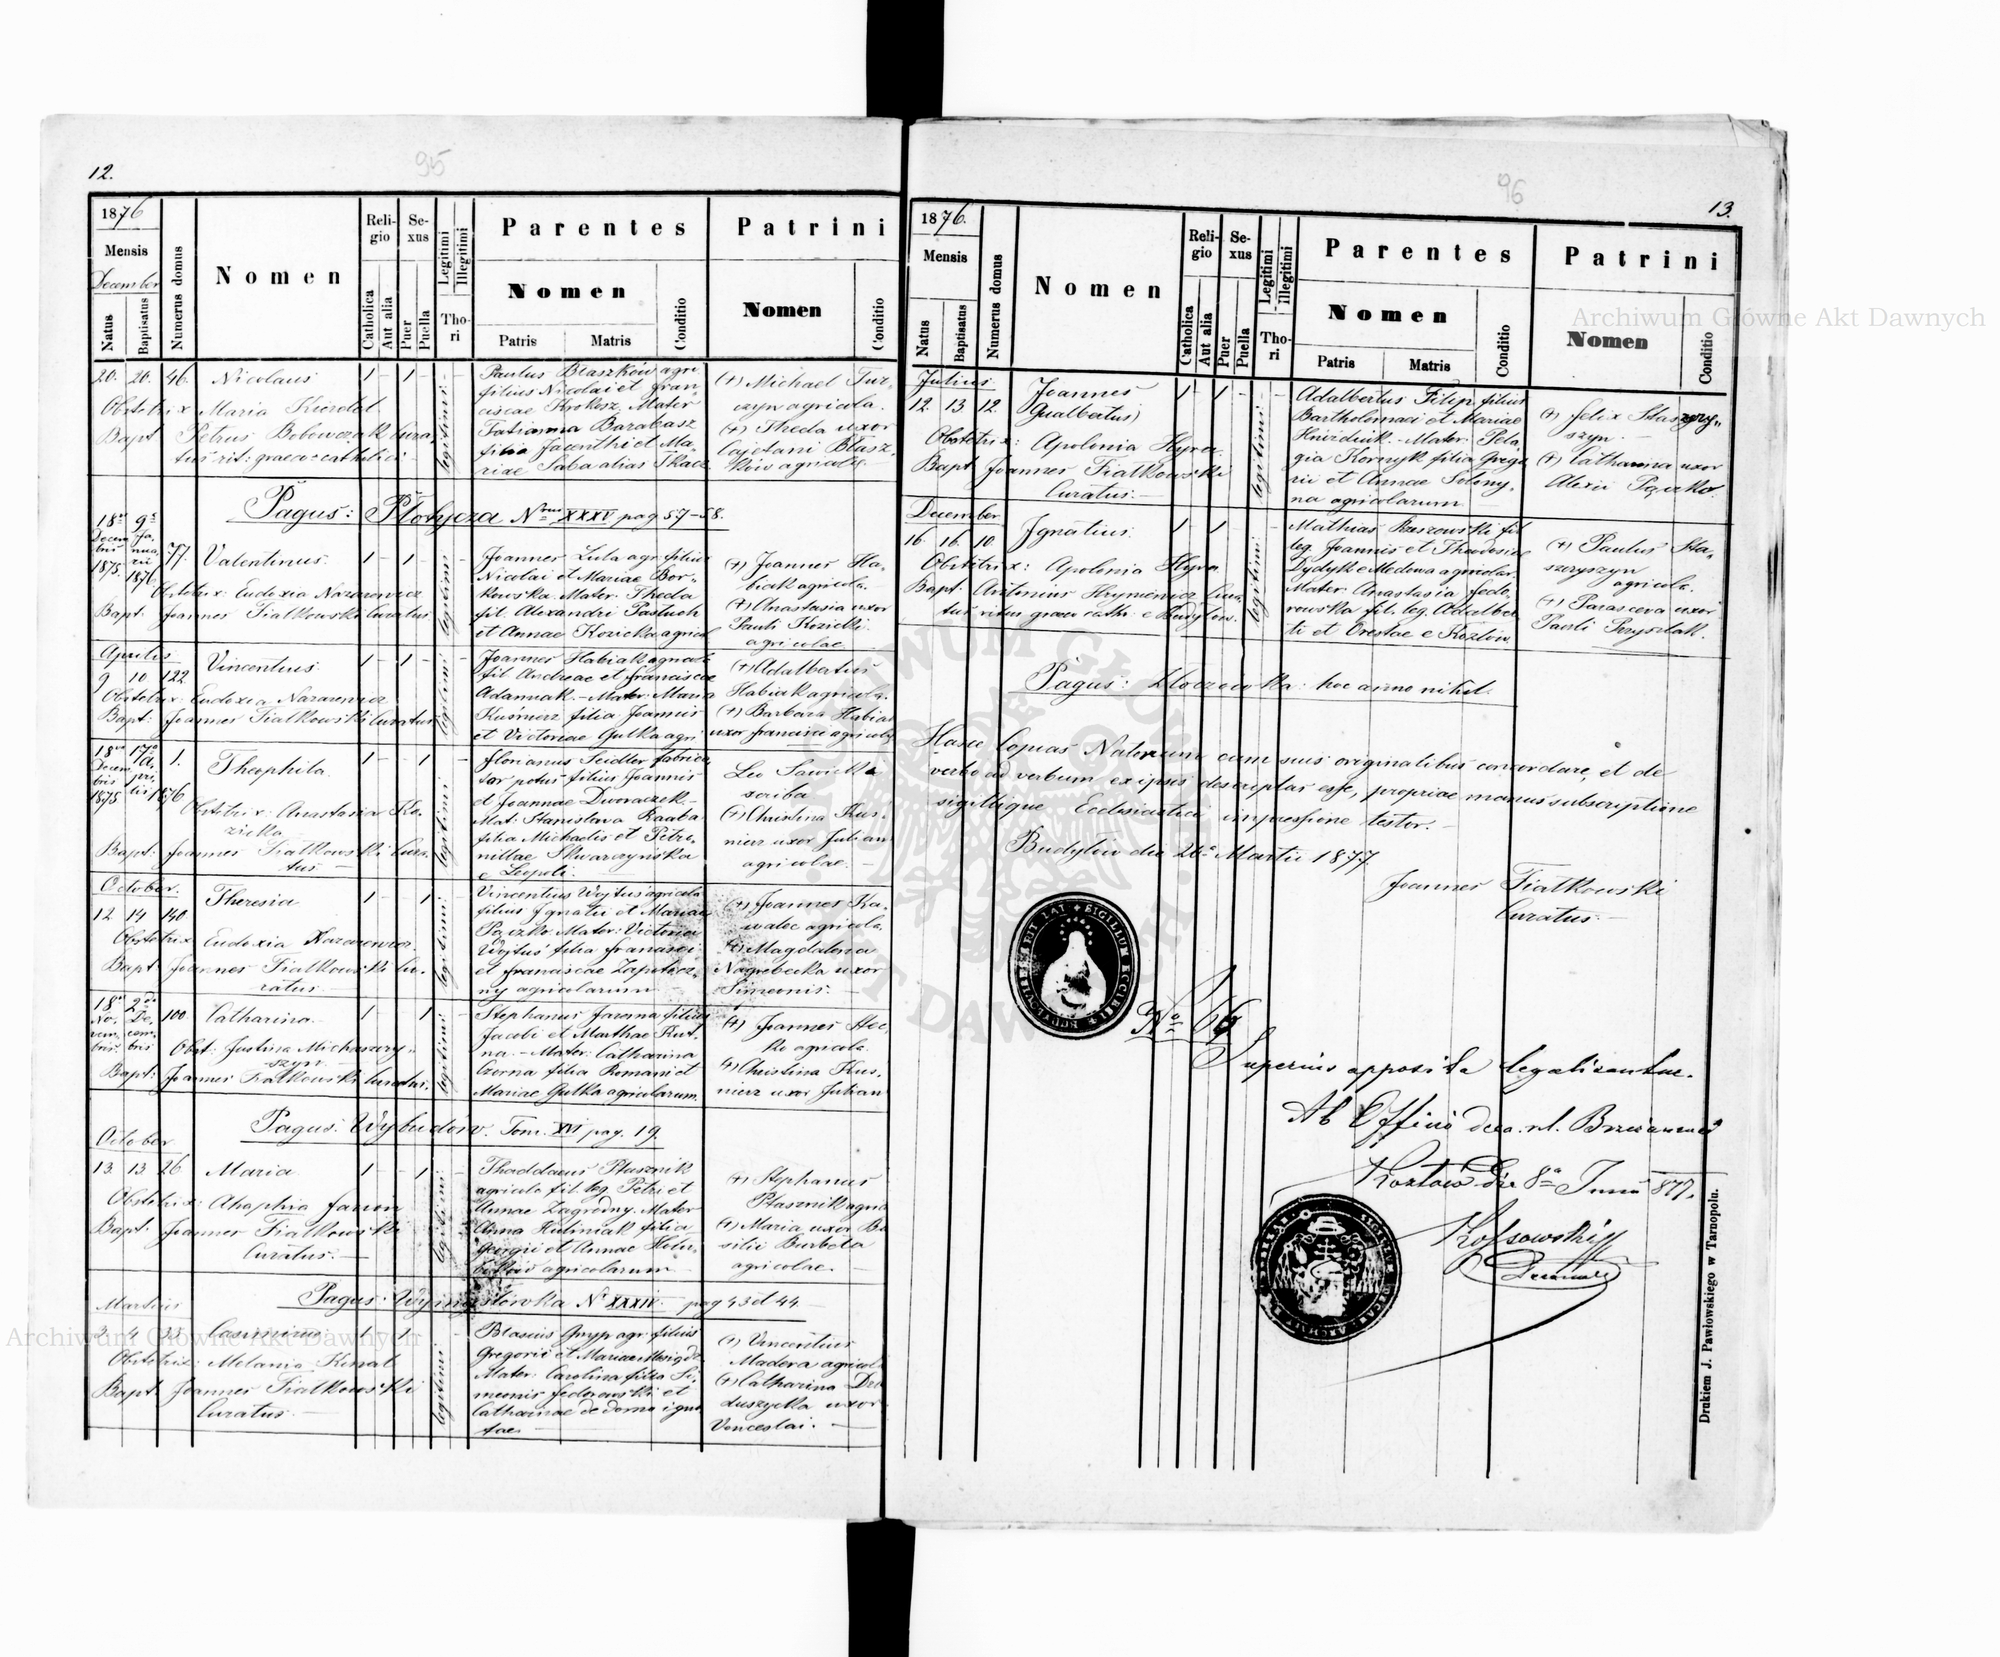 12.
95
1876
Mensis
December
Natus
Baptisatus
Numerus domus
Nomen
Religio
Catholica
Aut alia
Sexus
Puer
Puella
Legitimi
Illegitimi
Thori
Parentes
Nomen
Patris
Matris
Conditio
Patrini
Nomen
Conditio
20. 20. 46. Nicolaus 1 - 1 -
Obstetrix Maria
Bapt Petrus Bobowczak Cura-
tus rit: graeco-catholici
legitimi
Paulus Blaszków agri
filius Nicolai et Fran
ciscae Krokosz, Mater
Tatianna Barabasz
filia Jacenthi et Ma-
riae Saba alias Tkacz
(+) Michael Tur-
czyn agricola.
(+) Theda uxor
Cajetani Blasz-
ków agricolae.
Pagus: Płotycza Nrus XXXV pag 57-58.
18va Decembris 1875
9a Januarii 1876
77. Valentinus 1 - 1 -
Obstetrix: Eudoxia Nazarewicz
Bapt: Joannes Fiatkowski Curatus
legitimi
Joannes Lula agr. filius
Nicolai et Mariae Bor-
kowska. Mater. Theda
fil. Alexandri Pastuch
et Annae Kozicka agricol
(+) Joannes Ha-
biak agricola.
(+) Anastasia uxor
Pauli Kozicki
agricolae
Aprilis
9 10 122 Vincentius 1 - 1 -
Obstetrix: Eudoxia Nazarewicz
Bapt: Joannes Fiatkowski Curatus
legitimi
Joannes Habiak agricola
fil. Andreae et Franciscae
Adamiak. - Mater. Maria
Kuśmierz filia Joannis
et Victoriae Gulka agri
(+) Adalbertus
Habiak agricola.
(+) Barbara Habiak
uxor Francisci agricolae
18va Decembris 1875
17a Aprilis 1876
1. Theophila 1 - - 1
Obstetrix: Anastasia Ko-
zicka
Bapt: Joannes Fiatkowski Cura-
tus
legitimi
Florianus Seidler fabrica
tor potus filius Joannis
et Joannae Dworaczek -
Mat: Stanislava Raaba
filia Michaelis et Petro-
nillae Skwarczyńska
e Leopoli.
Leo Sawicki
scriba
(+) Christina Kus-
mierz uxor Julian
agricolae. -
October.
12 14 140 Theresia 1 - - 1
Obstetrix Eudoxia Nazarewicz
Bapt: Joannes Fiatkowski Cu-
ratus
legitimi
Vincentius Wojtuś agricola
filius Ignatii et Mariae
Pączko. Mater: Victoria
Wojtuś filia Francisci
et Franciscae
agricolarum
(+) Joannes Ko-
walec agricola.
(+) Magdalena
uxor
Simeonis. -
18va Novembris
2da Decembris
100 Catharina 1 - - 1
Obst: Justina Michaszczy-
szyn
Bapt: Joannes Fiatkowski Curatus.
legitimi
Stephanus Jarema filius
Jacobi et Marthae Kut-
na. - Mater: Catharina
Czorna filia Romani et
Mariae Gulka agricolarum
(+) Joannes Stec
ko agricola.
(+) Christina Kus-
mierz uxor Julian
Pagus: Wybudów. Tom. XVI pag. 19.
October
13 13 26 Maria 1 - - 1
Obstetrix: Ahaphia
Bapt: Joannes Fiatkowski
Curatus. -
legitimi
Thaddaeus Ptasznik
agricola fil. leg. Petri et
Annae Zagrodny. Mater
Anna Huliniak filia
Georgii et Annae Holu-
agricolarum
(+) Stephanus
Ptasznik agric
(+) Maria uxor Ba
silii Burbeta
agricolae. -
Pagus: Wymysłówka Nr XXXIV. pag 43 et 44.
Martius
3 4 33 Casimirus 1 - 1 -
Obstetrix: Melania
Bapt: Joannes Fiatkowski
Curatus. -
legitimi
Blasius Gnyp agr. filius
Gregorii et Mariae
Mater: Carolina filia Si-
meonis Fedorowski et
Catharinae de domo igno
tae.
(+) Vincentius
Madera agricol
(+) Catharina
uxor
Venceslai. -
96
13.
1876.
Mensis
Natus
Baptisatus
Numerus domus
Nomen
Religio
Catholica
Aut alia
Sexus
Puer
Puella
Legitimi
Illegitimi
Thori
Parentes
Nomen
Patris
Matris
Conditio
Patrini
Nomen
Conditio
Julius
12. 13. 12. Joannes
Gualbertus) 1 - 1 -
Obstetrix: Apolonia Hyra.
Bapt Joannes Fiatkowski
Curatus. -
legitimi
Adalbertus Filip filius
Bartholomaei et Mariae
Hnizdiuk. - Mater: Pela
gia Korczyk filia Grego
rii et Annae
na agricolarum
(+) Felix Staszczy-
szyn. -
(+) Catharina uxor
Alexii Pączko.
December
16. 16. 10. Ignatius. 1 - 1 -
Obstetrix: Apolonia Hyra
Bapt: Antonius Hrymewicz Cura
tus ritus graeco cath: e Budyłów.
legitimi
Mathias Kaszowski fil
leg. Joannis et Theodosiae
Dydyk e Medowa agricolar.
Mater: Anastasia Fedo
rowska fil. leg. Adalber
ti et Orestae e Kozłów.
(+) Paulus Sta-
szczyszyn
agricola.
(+) Parasceva uxor
Pauli
Pagus: Złoczówka: hoc anno nihil.
Hasce Copias Natorum cum suis originalibus concordare, et de
verbo ad verbum ex ipsis descriptas esse, propriae manus subscriptione
sigillique Ecclesiastici impressione testor. -
Budyłów die 26a Martii 1877
Joannes Fiatkowski
Curatus. -
SIGILLUM ECCLESIAE
No 66
Superius apposita legalisantur.
Ab Officio deca. r.l. Brzezanensi
Kozłów die 8a Junii 877.
Kossowski
Decanus
Drukiem J. Pawłowskiego w Tarnopolu.
Archiwum Główne Akt Dawnych
Archiwum Główne Akt Dawnych
ARCHIWUM GŁÓWNE AKT DAWNYCH